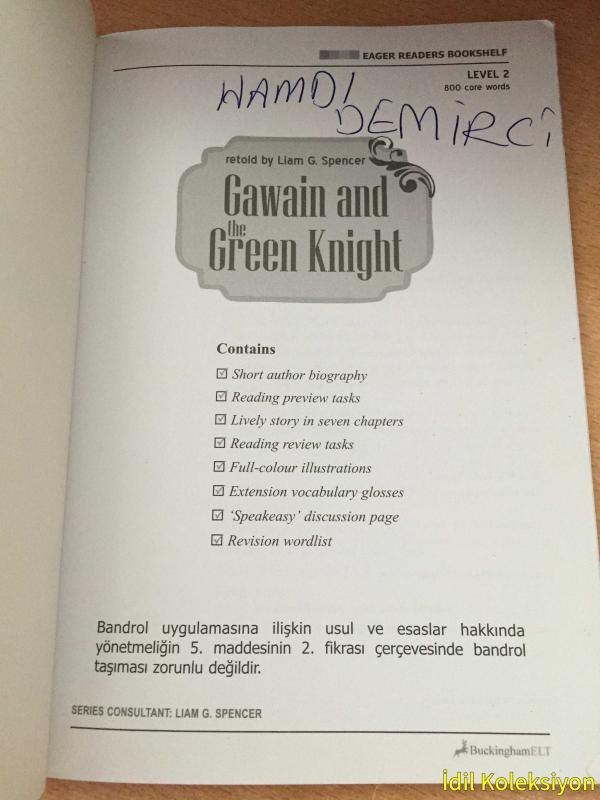 EAGER READERS BOOKSHELF
LEVEL 2
800 core words
HAMDI
DEMİRCİ
retold by Liam G. Spencer
Gawain and
the
Green Knight
Contains
☑ Short author biography
☑ Reading preview tasks
☑ Lively story in seven chapters
☑ Reading review tasks
☑ Full-colour illustrations
☑ Extension vocabulary glosses
☑ ‘Speakeasy’ discussion page
☑ Revision wordlist
Bandrol uygulamasına ilişkin usul ve esaslar hakkında
yönetmeliğin 5. maddesinin 2. fikrası çerçevesinde bandrol
taşıması zorunlu değildir.
SERIES CONSULTANT: LIAM G. SPENCER
BuckinghamELT
İdil Koleksiyon